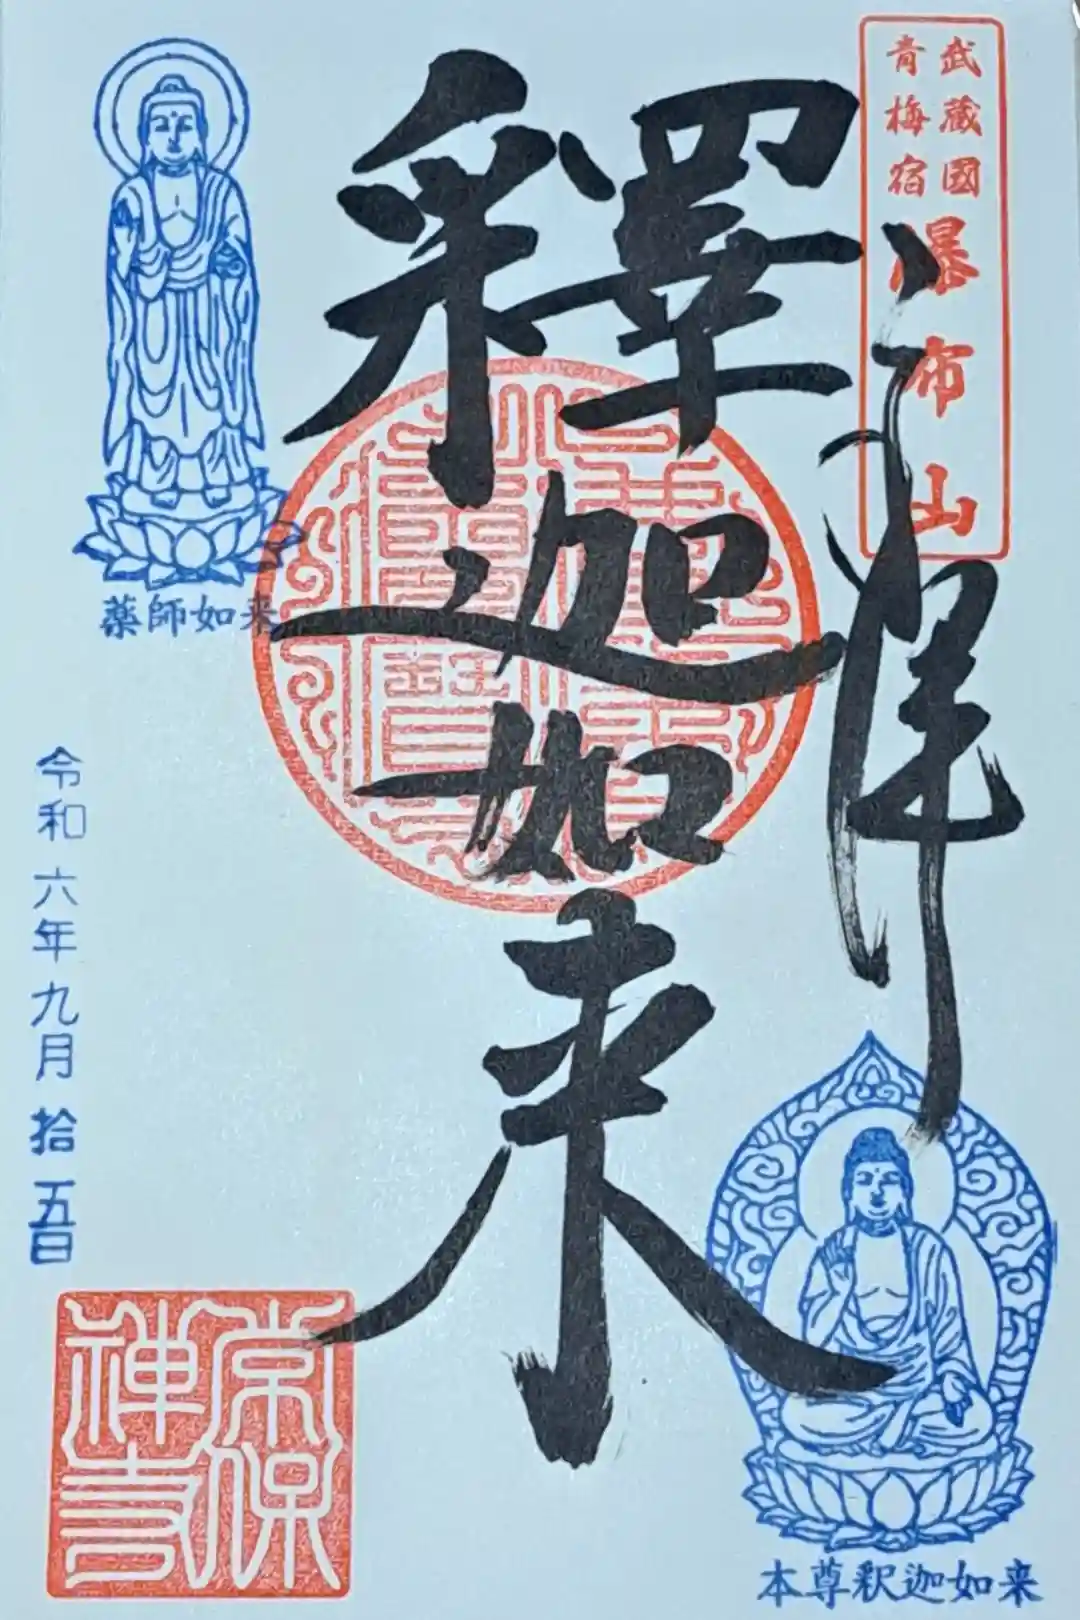 武蔵國
青梅宿
瀑布山
奉拝
釋迦如来
薬師如来
令和六年九月拾五日
常保
禅寺
本尊釈迦如来